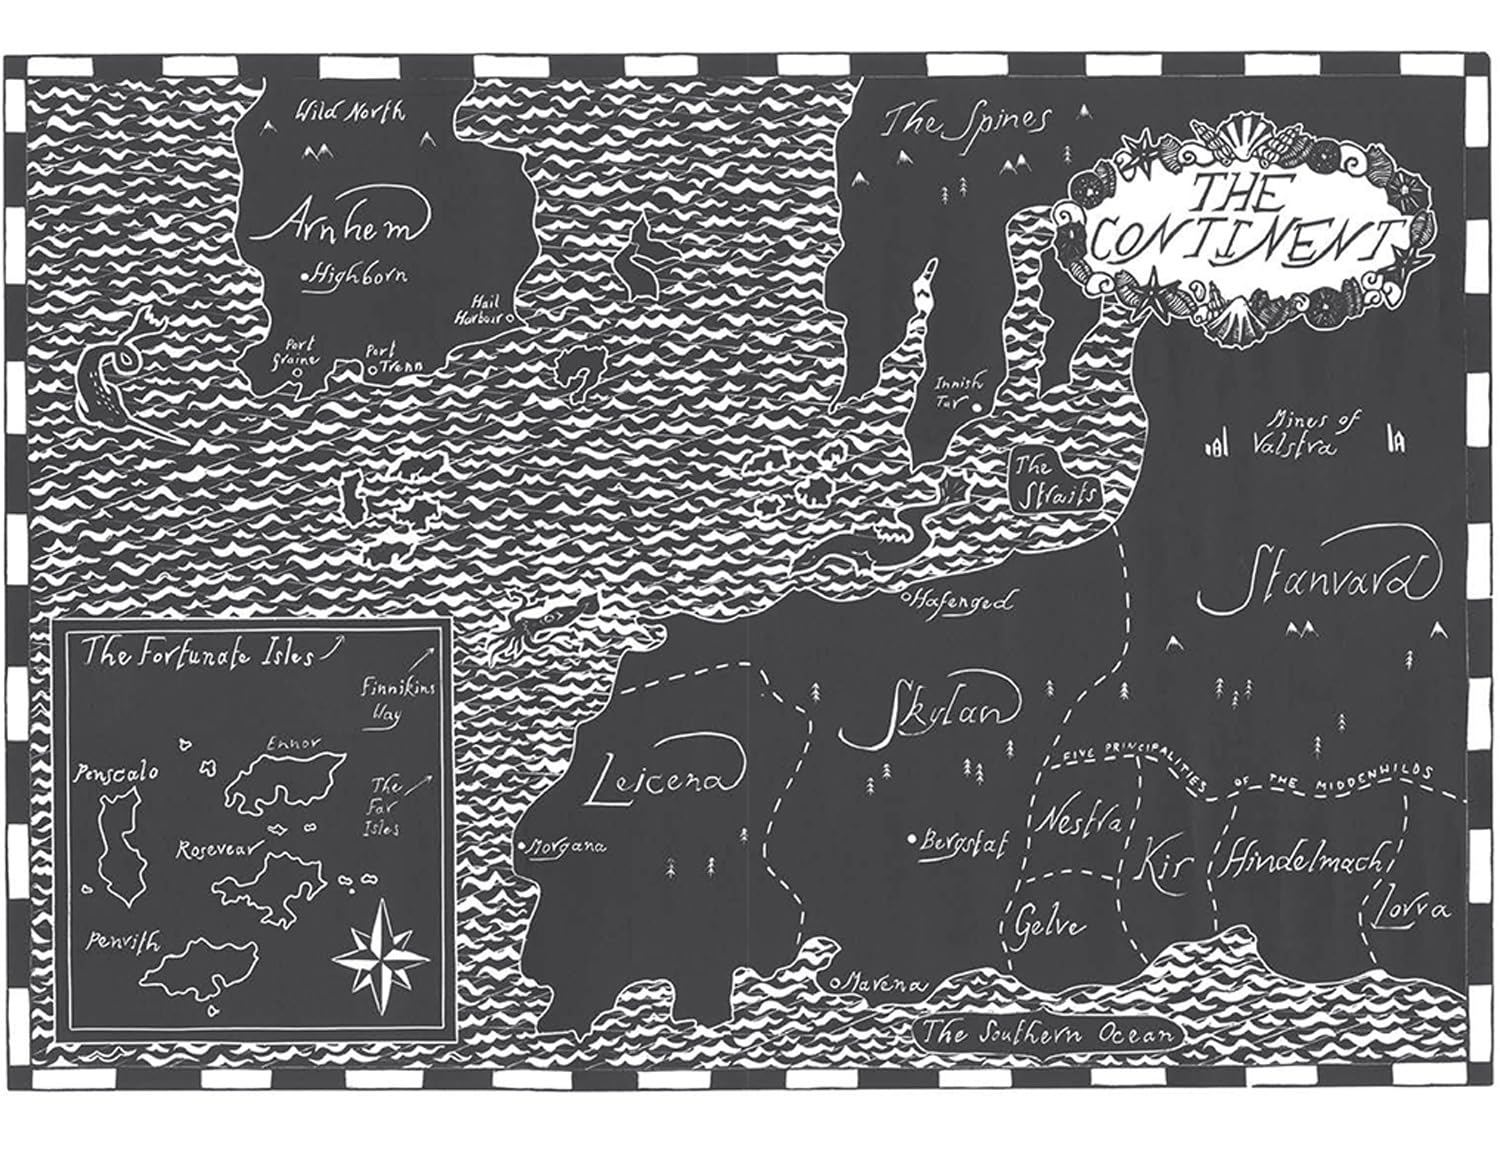 Wild North
Arnhem
Highborn
Hail
Harbour
Port
Graine
Port
Trenn
The Spines
THE
CONTINENT
Innish
Tur
The
Straits
Mines of
Valstra
Stanvard
Hafenged
Skylan
Leicena
Morgana
Bergstat
Mavena
FIVE PRINCIPALITIES OF THE MIDDENWILDS
Nestra
Kis
Hindelmach
Gelve
Lovra
The Southern Ocean
The Fortunate Isles
Finnikins
Way
Ennor
Penscalo
The
Far
Isles
Rosevear
Penvith